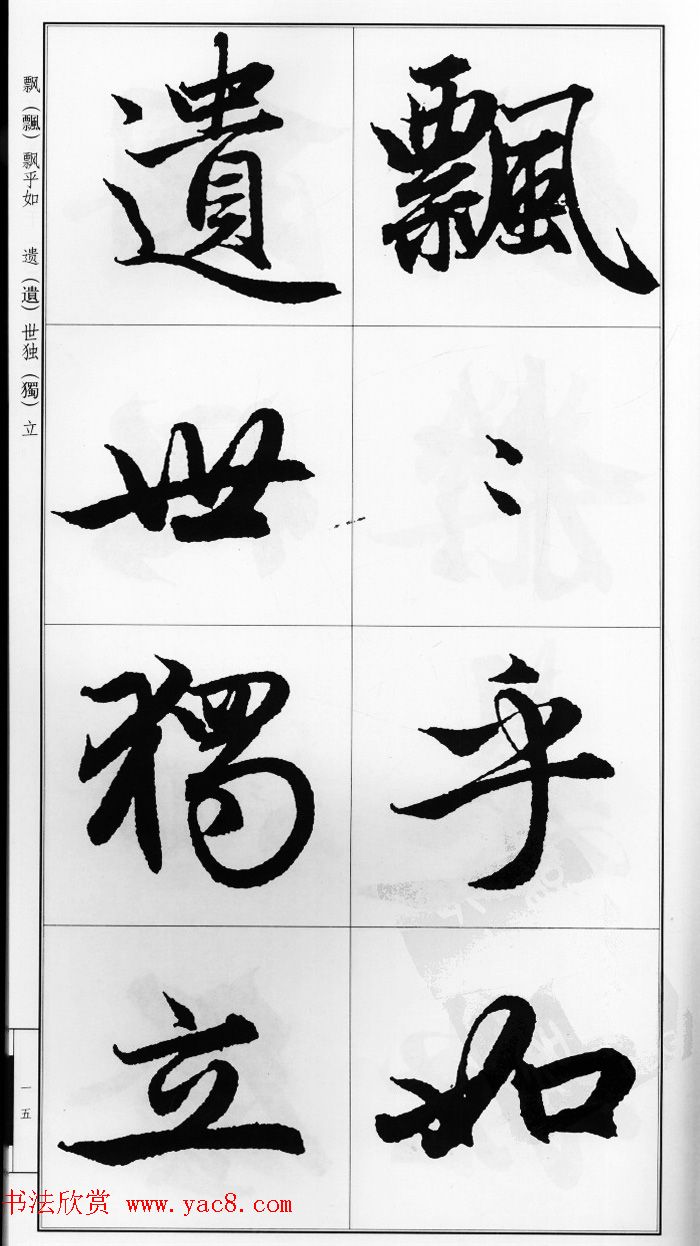 飄〻乎如
遺世獨立
飘（飄）飘乎如 遗（遺）世独（獨）立
一五
书法欣赏 www.yac8.com